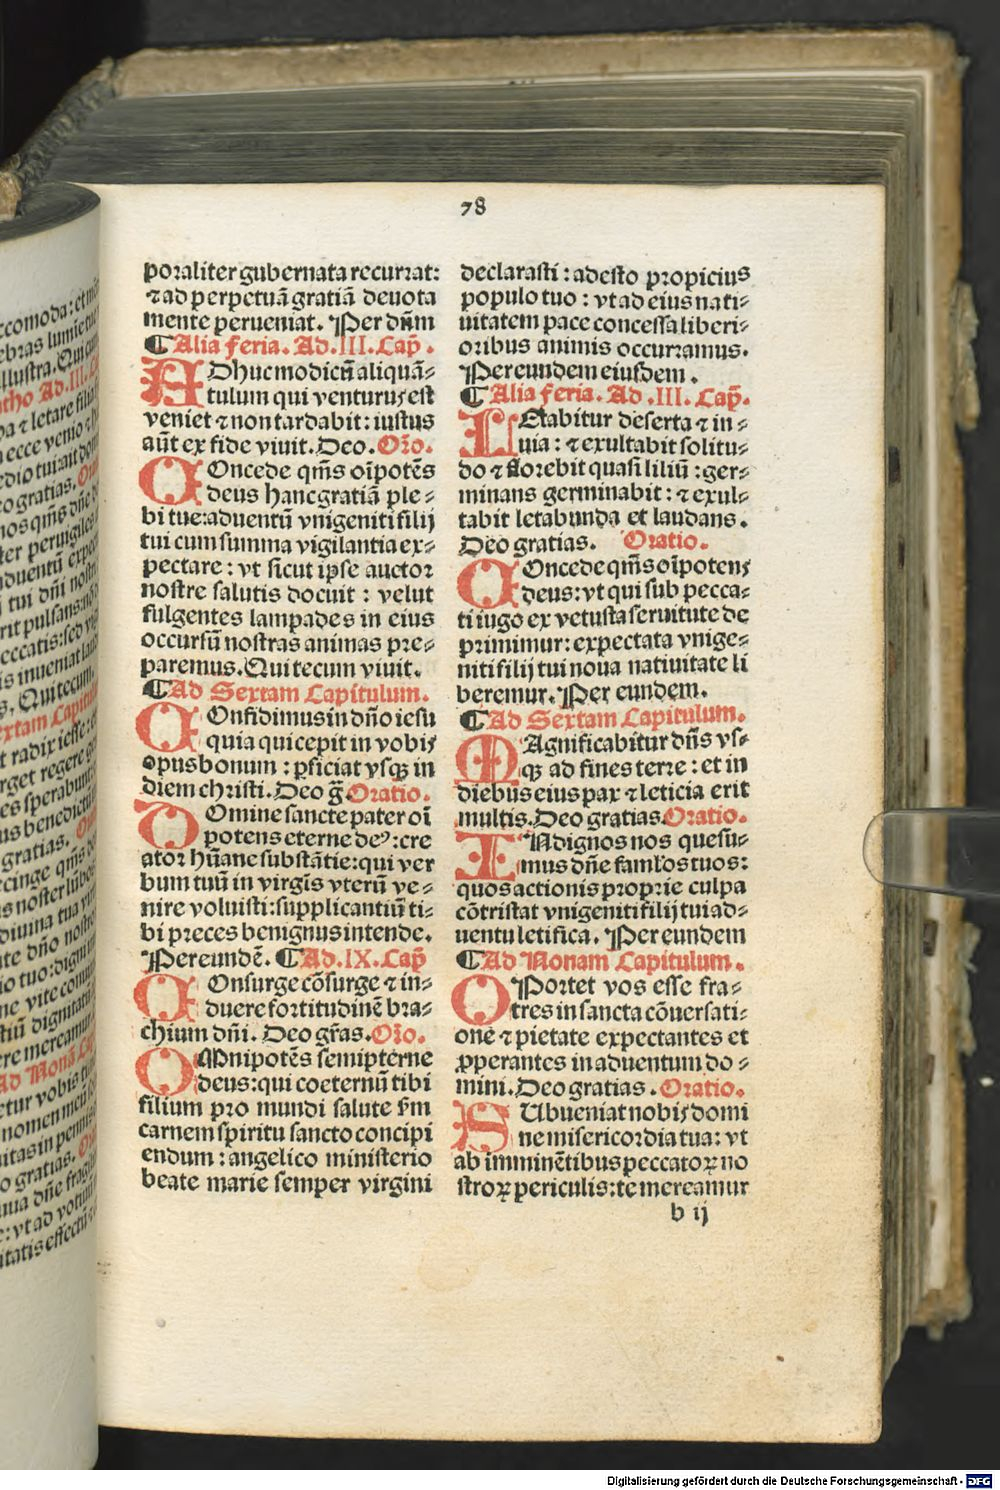 78
poraliter gubernata recurrat:
⁊ ad perpetuā gratiā deuota
mente perueniat. Per dn̄m
¶ Alia feria. Ad .III. Cap̄.
ADhuc modicū aliquā⸗
tulum qui venturus est
veniet ⁊ non tardabit: iustus
aūt ex fide viuit. Deo. Or̄o.
COncede qm̄s oīpotēs
deus hanc gratiā ple⸗
bi tue: aduentū vnigeniti filij
tui cum summa vigilantia ex⸗
pectare: vt sicut ipse auctor
nostre salutis docuit : velut
fulgentes lampades in eius
occursū nostras animas pre⸗
paremus. Qui tecum viuit.
¶ Ad Sextam Capitulum.
COnfidimus in dn̄o iesu
quia qui cepit in vobis
opus bonum : ꝑficiat vsqꝫ in
diem christi. Deo ḡ. Oratio.
DOmine sancte pater oī
potens eterne deꝰ: cre
ator hūane substātie: qui ver
bum tuū in virgīs vterū ve⸗
nire voluisti: supplicantiū ti⸗
bi preces benignus intende.
Per eundē. ¶ Ad .IX. Cap̄
COnsurge cōsurge ⁊ in⸗
duere fortitudinē bra⸗
chium dn̄i. Deo gr̄as. Or̄o.
OMnipotēs sempiterne
deus: qui coeternū tibi
filium pro mundi salute s̄m
carnem spiritu sancto concipi
endum : angelico ministerio
beate marie semper virgini
declarasti : adesto propicius
populo tuo : vt ad eius nati⸗
uitatem pace concessa liberi⸗
oribus animis occurramus.
Per eundem eiusdem .
¶ Alia feria. Ad .III. Cap̄.
LEtabitur deserta ⁊ in⸗
uia : ⁊ exultabit solitu⸗
do ⁊ florebit quasi liliū : ger⸗
minans germinabit : ⁊ exul⸗
tabit letabunda et laudans.
Deo gratias. Oratio.
COncede qm̄s oīpotens
deus: vt qui sub pecca⸗
ti iugo ex vetusta seruitute de
primimur: expectata vnige⸗
niti filij tui noua natiuitate li
beremur. Per eundem.
¶ Ad Sextam Capitulum.
MAgnificabitur dn̄s vs⸗
qꝫ ad fines terre : et in
diebus eius pax ⁊ leticia erit
multis. Deo gratias. Oratio.
INdignos nos quesu⸗
mus dn̄e famłos tuos:
quos actionis proprie culpa
cōtristat vnigeniti filij tui ad⸗
uentu letifica. Per eundem
¶ Ad Nonam Capitulum.
OPortet vos esse fra⸗
tres in sancta cōuersati⸗
one ⁊ pietate expectantes et
ꝓperantes in aduentum do⸗
mini. Deo gratias . Oratio.
SUbueniat nobis domi
ne misericordia tua: vt
ab imminētibus peccatoꝝ no
stroꝝ periculis: te mereamur
b ij
Digitalisierung gefördert durch die Deutsche Forschungsgemeinschaft - DFG